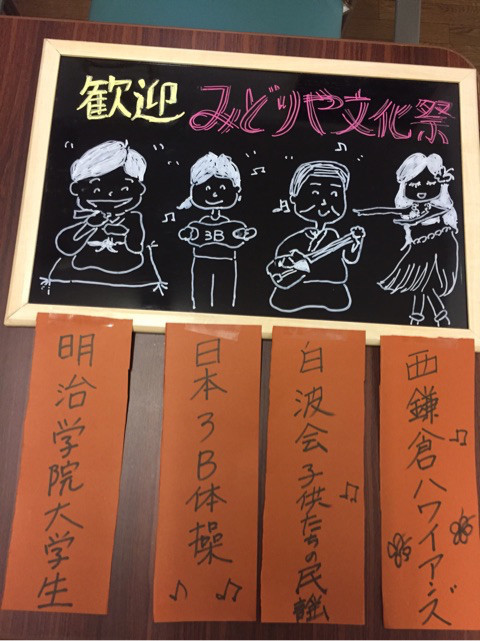 歓迎 みどりや文化祭
3B
明治学院大学生
日本3B体操
白波会 子供たちの民謡
西鎌倉ハワイアンズ